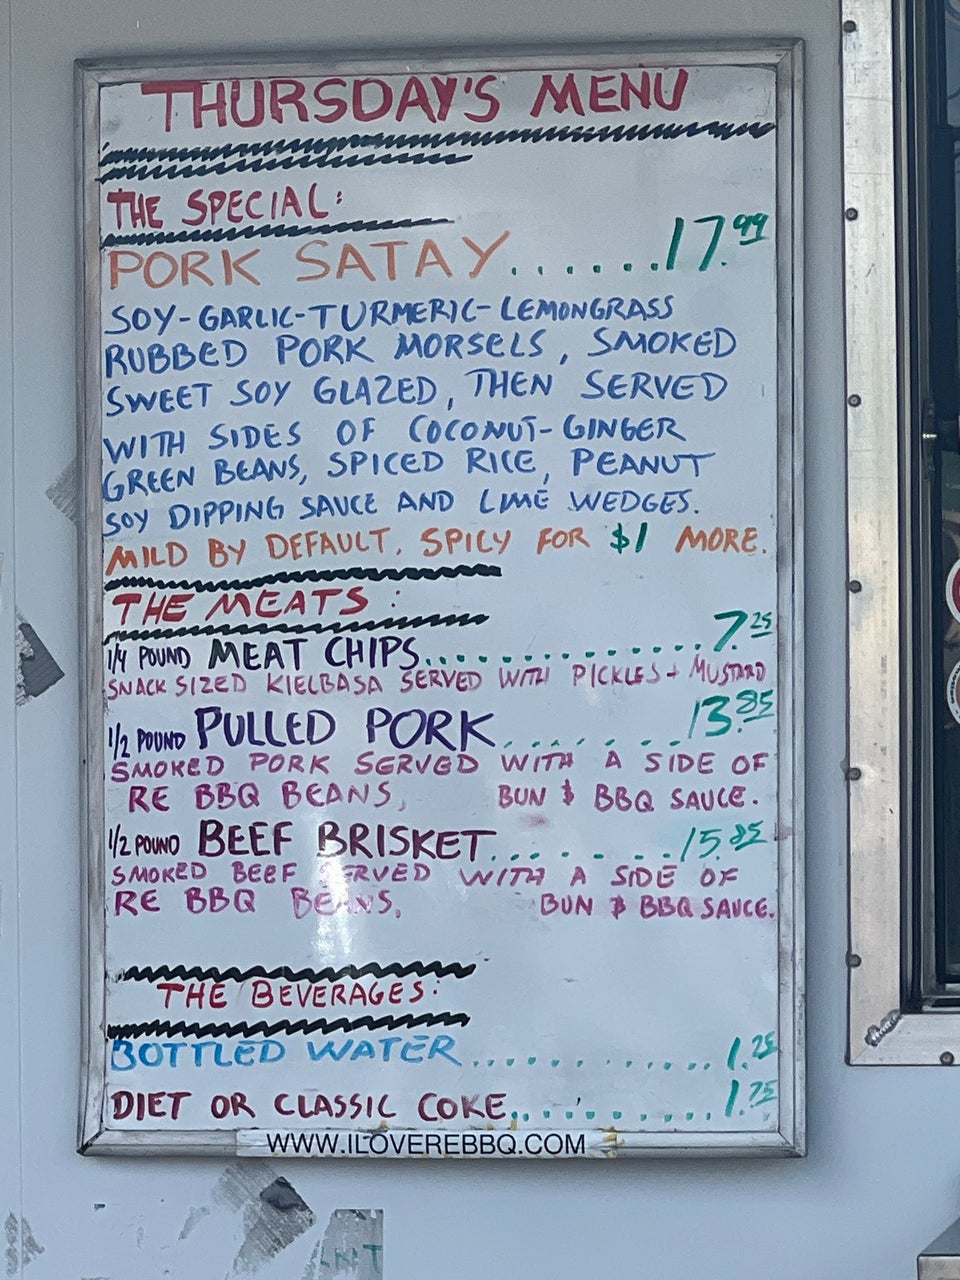 THURSDAY'S MENU
THE SPECIAL:
PORK SATAY.......17.99
SOY-GARLIC-TURMERIC-LEMONGRASS
RUBBED PORK MORSELS, SMOKED
SWEET SOY GLAZED, THEN SERVED
WITH SIDES OF COCONUT-GINGER
GREEN BEANS, SPICED RICE, PEANUT
SOY DIPPING SAUCE AND LIME WEDGES.
MILD BY DEFAULT. SPICY FOR $1 MORE.
THE MEATS:
1/4 POUND MEAT CHIPS..............7.25
SNACK SIZED KIELBASA SERVED WITH PICKLES + MUSTARD
1/2 POUND PULLED PORK........13.85
SMOKED PORK SERVED WITH A SIDE OF
RE BBQ BEANS, BUN & BBQ SAUCE.
1/2 POUND BEEF BRISKET........15.85
SMOKED BEEF SERVED WITH A SIDE OF
RE BBQ BEANS, BUN & BBQ SAUCE.
THE BEVERAGES:
BOTTLED WATER............1.25
DIET OR CLASSIC COKE..........1.75
WWW.ILOVEREBBQ.COM